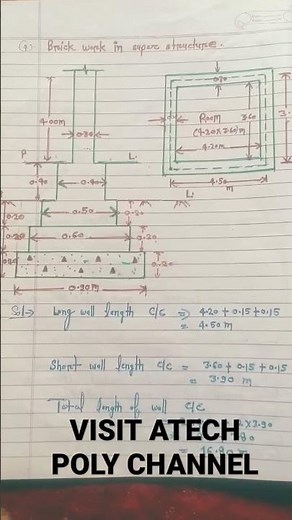 (4) Brick work in super structure.
4.00m
0.30
P. L.
0.90 0.40
0.20 0.50 0.20
0.20 0.60 0.20
0.20
0.90 m
0.30
Room
(4.20x3.60)m
3.60
4.20m
4.50
m
Sol→ Long wall length c/c ⇒ 4.20 + 0.15 + 0.15
= 4.50 m
Short wall length c/c = 3.60 + 0.15 + 0.15
= 3.90 m
Total length of wall c/c
x 3.90
80
16.80 m
VISIT ATECH
POLY CHANNEL